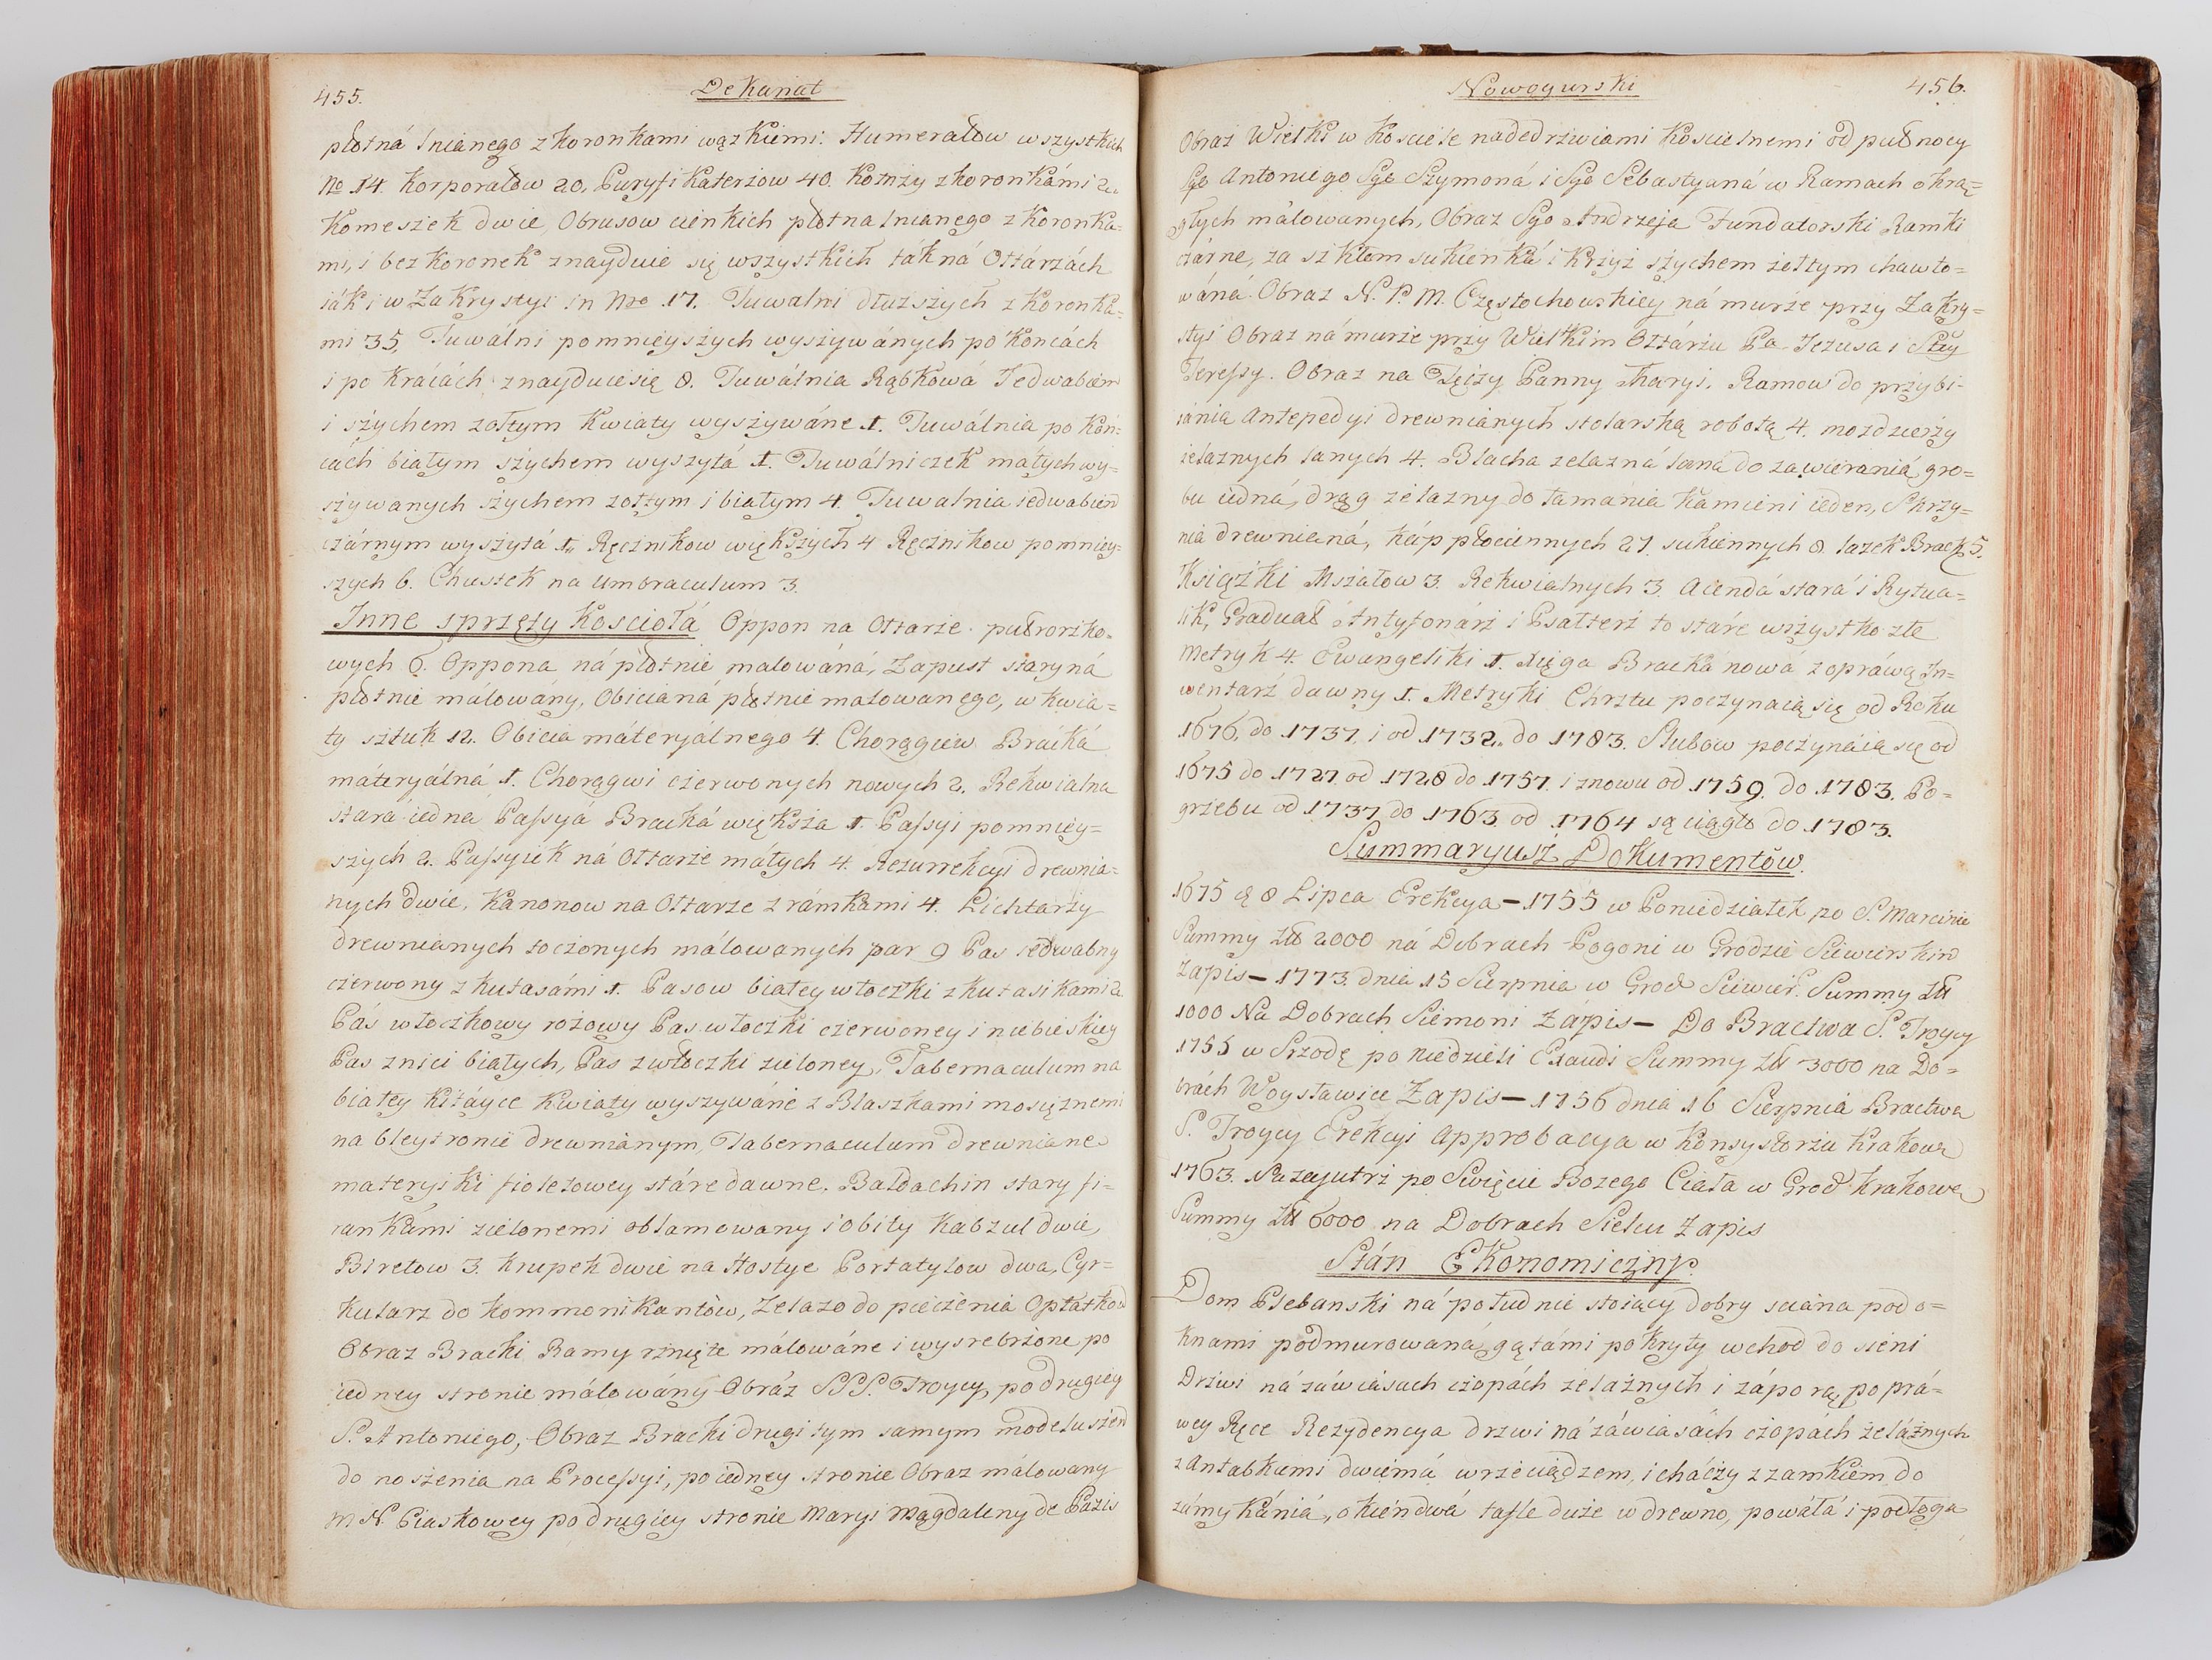 455.
Dekanat
płotná lnianego z koronkami wązkiemi: Humerałów wszystkich
No 14. Korporałów 20, Puryfikaterżow 40. Komży z koronkámi 2..
Komeszek dwie, Obrusow cienkich płotna lnianego z koronka=
mi, i bez koronek znayduie się wszystkich ták ná Ołtárzách
iák i w Zakrystyi in Nro 17. Tuwalni dłuższych z koronka=
mi 35, Tuwálni pomnieyszych wyszywánych po końcách
i po kráiách znayduie się 8. Tuwálnia Rąbkowá Jedwabiem
i szychem żołtym Kwiaty wyszywáne 1. Tuwálnia po koń=
cach białym szychem wyszytá 1. Tuwálniczek małych wy=
szywanych szychem żołtym i białym 4. Tuwalnia iedwabiem
czárnym wyszytá 1,, Ręcznikow większych 4 Ręcznikow pomniey=
szych 6. Chustek na Umbraculum 3.
Inne sprzęty Koscioła Oppon na Ołtarze pułrorżko=
wych 6. Oppona ná płotnie malowáná, Zapust stary ná
płotnie málowány, Obicia ná płotnie malowanego, w kwia=
ty sztuk 12. Obicia máteryálnego 4. Chorągiew Bracká
máteryálná 1. Chorągwi czerwonych nowych 2. Rekwialna
stara iedna Passyá Bracká większa 1. Passyi pomniey=
szych 2. Passyiek ná Ołtarze máłych 4. Rezurrekcyi drewnia=
nych dwie, Kanonow na Ołtarze z rámkami 4. Lichtarzy
drewnianych toczonych málowanych par 9 Pas iedwabny
czerwony z kutasámi 1. Pasow białey włoczki z kutasikami 2
Pás włoczkowy rożowy Pas włoczki czerwoney i niebieskiey
Pas z nici białych, Pas z włoczki zieloney, Tabernaculum na
białey kitáyce kwiaty wyszywáne z Blaszkami mosiężnemi
na bleytronie drewnianym, Tabernaculum drewniane
materyiki fioletowey stáre dawne. Baldachin stary fi=
rankámi zielonemi oblamowany i obity Kabzul dwie,
Biretow 3. Krupek dwie na Hostye Portatylow dwa, Cyr=
kularz do kommonikantów, Zelazo do pieczenia Opłatkow
Obraz Bracki Ramy rznięte málowáne i wysrebrżone po
iedney stronie málowány Obráz SSS. Troycy, po drugiey
S. Antoniego, Obraz Bracki drugi tym samym modeluszem
do noszenia na Processyi, po iedney stronie Obraz málowany
M N. Piaskowey po drugiey stronie Maryi Magdaleny de Pazis
Nowogurski
456.
Obraz Wielki w Kosciele nadedrzwiami Koscielnemi od pułnocy
Sgo Antoniego Sgo Szymoná i Sgo Sebastyaná w Ramach okrą=
głych málowanych, Obraz Sgo Andrzeja Fundatorski Ramki
czárne, za szkłem sukienká i krzyż szychem żełtym chawto=
wáná. Obraz N. P. M. Częstochowskiey ná murze przy Zakry=
styi Obraz ná murze przy Wielkim Ołtárzu Pa Jezusa i Stey
Teressy. Obraz na Tęczy Panny Maryi. Ramow do przybi=
iánia Antepedyi drewnianych stolarską robotą 4. mozdzierży
żeláznych lanych 4. Blacha zelazná laná do zawierania gro=
bu iedná, drąg zelazny do łamania kamieni ieden, Skrzy=
nia drewnianá, káp płociennych 27. sukiennych 8. lazek Brack 5.
Ksiązki Mszałow 3. Rekwialnych 3. Acenda stará i Rytua=
lik, Graduał Antyfonárz i Psałterz to stáre wszystko złe
Metryk 4. Ewangeliki 1. xięga Bracka nowá z opráwą In=
wentarz dawny 1. Metryki Chrztu poczynaią się od Roku
1676, do 1737, i od 1732,, do 1783. Slubow poczynáią się od
1675 do 1727 od 1728 do 1757. i znowu od 1759. do 1783. Po=
grzebu od 1737 do 1763 od 1764 są ciągło do 1783.
Summaryusz Dokumentów.
1675 d 8 Lipca Erekcya – 1755 w Poniedziałek po S. Marcinie
Summy Zł 2000 ná Dobrach Pogoni w Grodzie Siewierskim
zapis – 1773. dnia 15 Sierpnia w Grod Siewier. Summy Zł
1000 Na Dobrach Siemoni Zápis – Do Bractwa S. Troycy
1755 w Srzodę po Niedzieli Exaudi Summy Zł 3000 na Do=
brách Woysławice Zapis – 1756 dnia 16 Sierpniá Bractwa
S. Troycy Erekcyi Approbacya w Konsystorzu Krakow
1763. Nazajutrz po Swięcie Bozego Ciała w Grod Krakow
Summy Zł 6000 na Dobrach Sielcu Zapis
Stán Ekonomiczny.
Dom Plebanski ná południe stoiący dobry sciana pod o=
knami podmurowaná, gątámi pokryty wchod do sieni
Drzwi ná záwiasach czopách zelaznych i záporą, po prá=
wey Ręce Rezydencya drzwi ná záwiasách czopách żeláznych
z Antabkami dwiemá wrzeciądzem, i cháczy z zamkiem do
zámykániá, okien dwá tafle duże w drewno, powáłá i podłoga